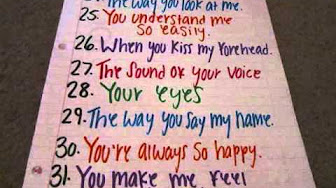 The way you look at me.
25. You understand me
so easily.
26. When you kiss my forehead.
27. The sound of your voice
28. Your eyes
29. The way you say my name.
30. You're always so happy.
31. You make me feel